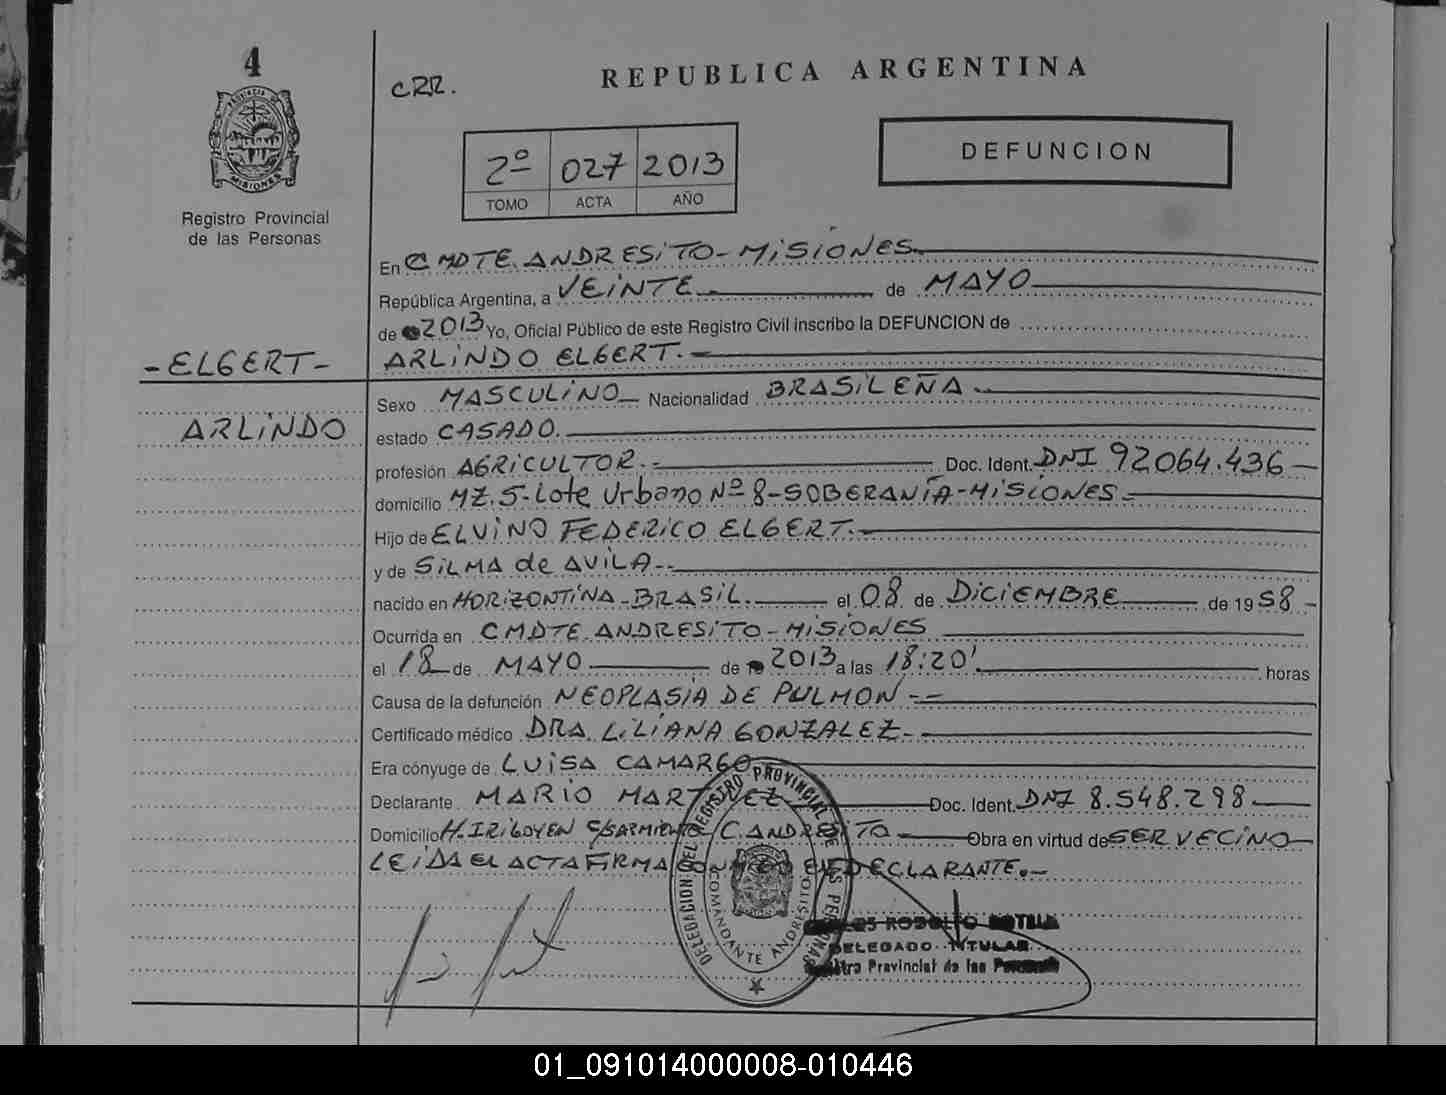 4
PROVINCIA DE
MISIONES
Registro Provincial
de las Personas
CRR.
REPUBLICA ARGENTINA
2º 027 2013
TOMO ACTA AÑO
DEFUNCION
En CMDTE ANDRESiTO - MiSiONES
República Argentina, a VEiNTE de MAYO
de 2013 Yo, Oficial Público de este Registro Civil inscribo la DEFUNCION de
ARLiNDO ELGERT.-
-ELGERT-
ARLiNDO
Sexo MASCULiNO Nacionalidad BRASiLEÑA
estado CASADO.
profesión AGRiCULTOR.- Doc. Ident. DNI 92064.436
domicilio MZ.5-Lote Urbano Nº 8-SOBERANíA-MiSiONES.-
Hijo de ELViNO FEDERiCO ELGERT.-
y de SiLMA de AViLA.-
nacido en HORiZONTiNA-BRASiL. el 08 de DiCiEMBRE de 1958-
Ocurrida en CMDTE ANDRESiTO-MiSiONES
el 18 de MAYO de 2013 a las 18:20' horas
Causa de la defunción NEOPLASíA DE PULMON--
Certificado médico DRA. LiLiANA GONZALEZ-
Era cónyuge de LUiSA CAMARGO
Declarante MARiO MARTiNEZ Doc. Ident. DNI 8.548.298
Domicilio H.IRiGOYEN C/SARMiENTO-C.ANDRESiTO Obra en virtud de SER VECiNO
LEiDA EL ACTA FiRMA CONMiGO EL DECLARANTE.-
DELEGACION DEL REGISTRO PROVINCIAL DE LAS PERSONAS
COMANDANTE ANDRESITO
RODOLFO
DELEGADO TITULAR
Registro Provincial de las Personas
01_091014000008-010446